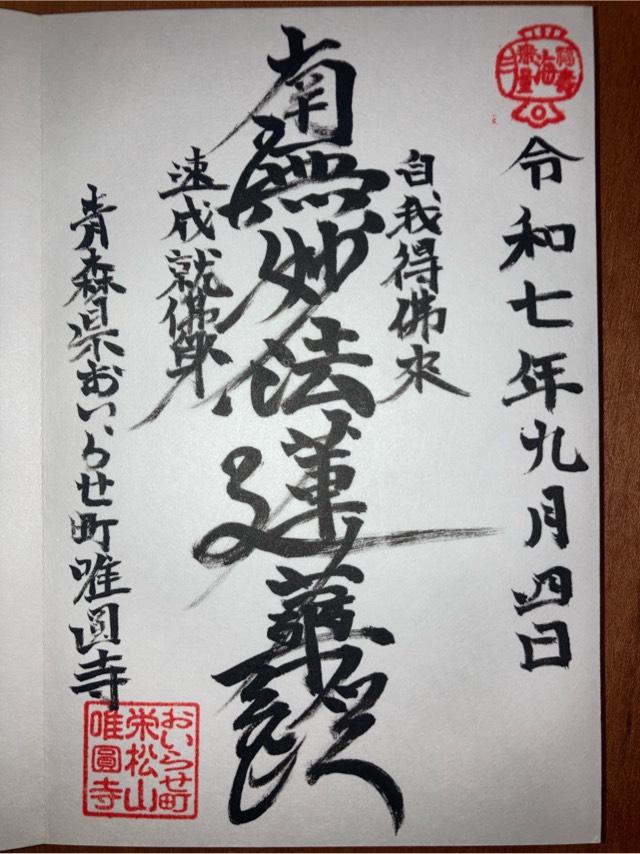 令和七年九月四日
自我得佛來
南無妙法蓮華経
速成就佛身
青森県おいらせ町唯圓寺
おいらせ町
栄松山
唯圓寺